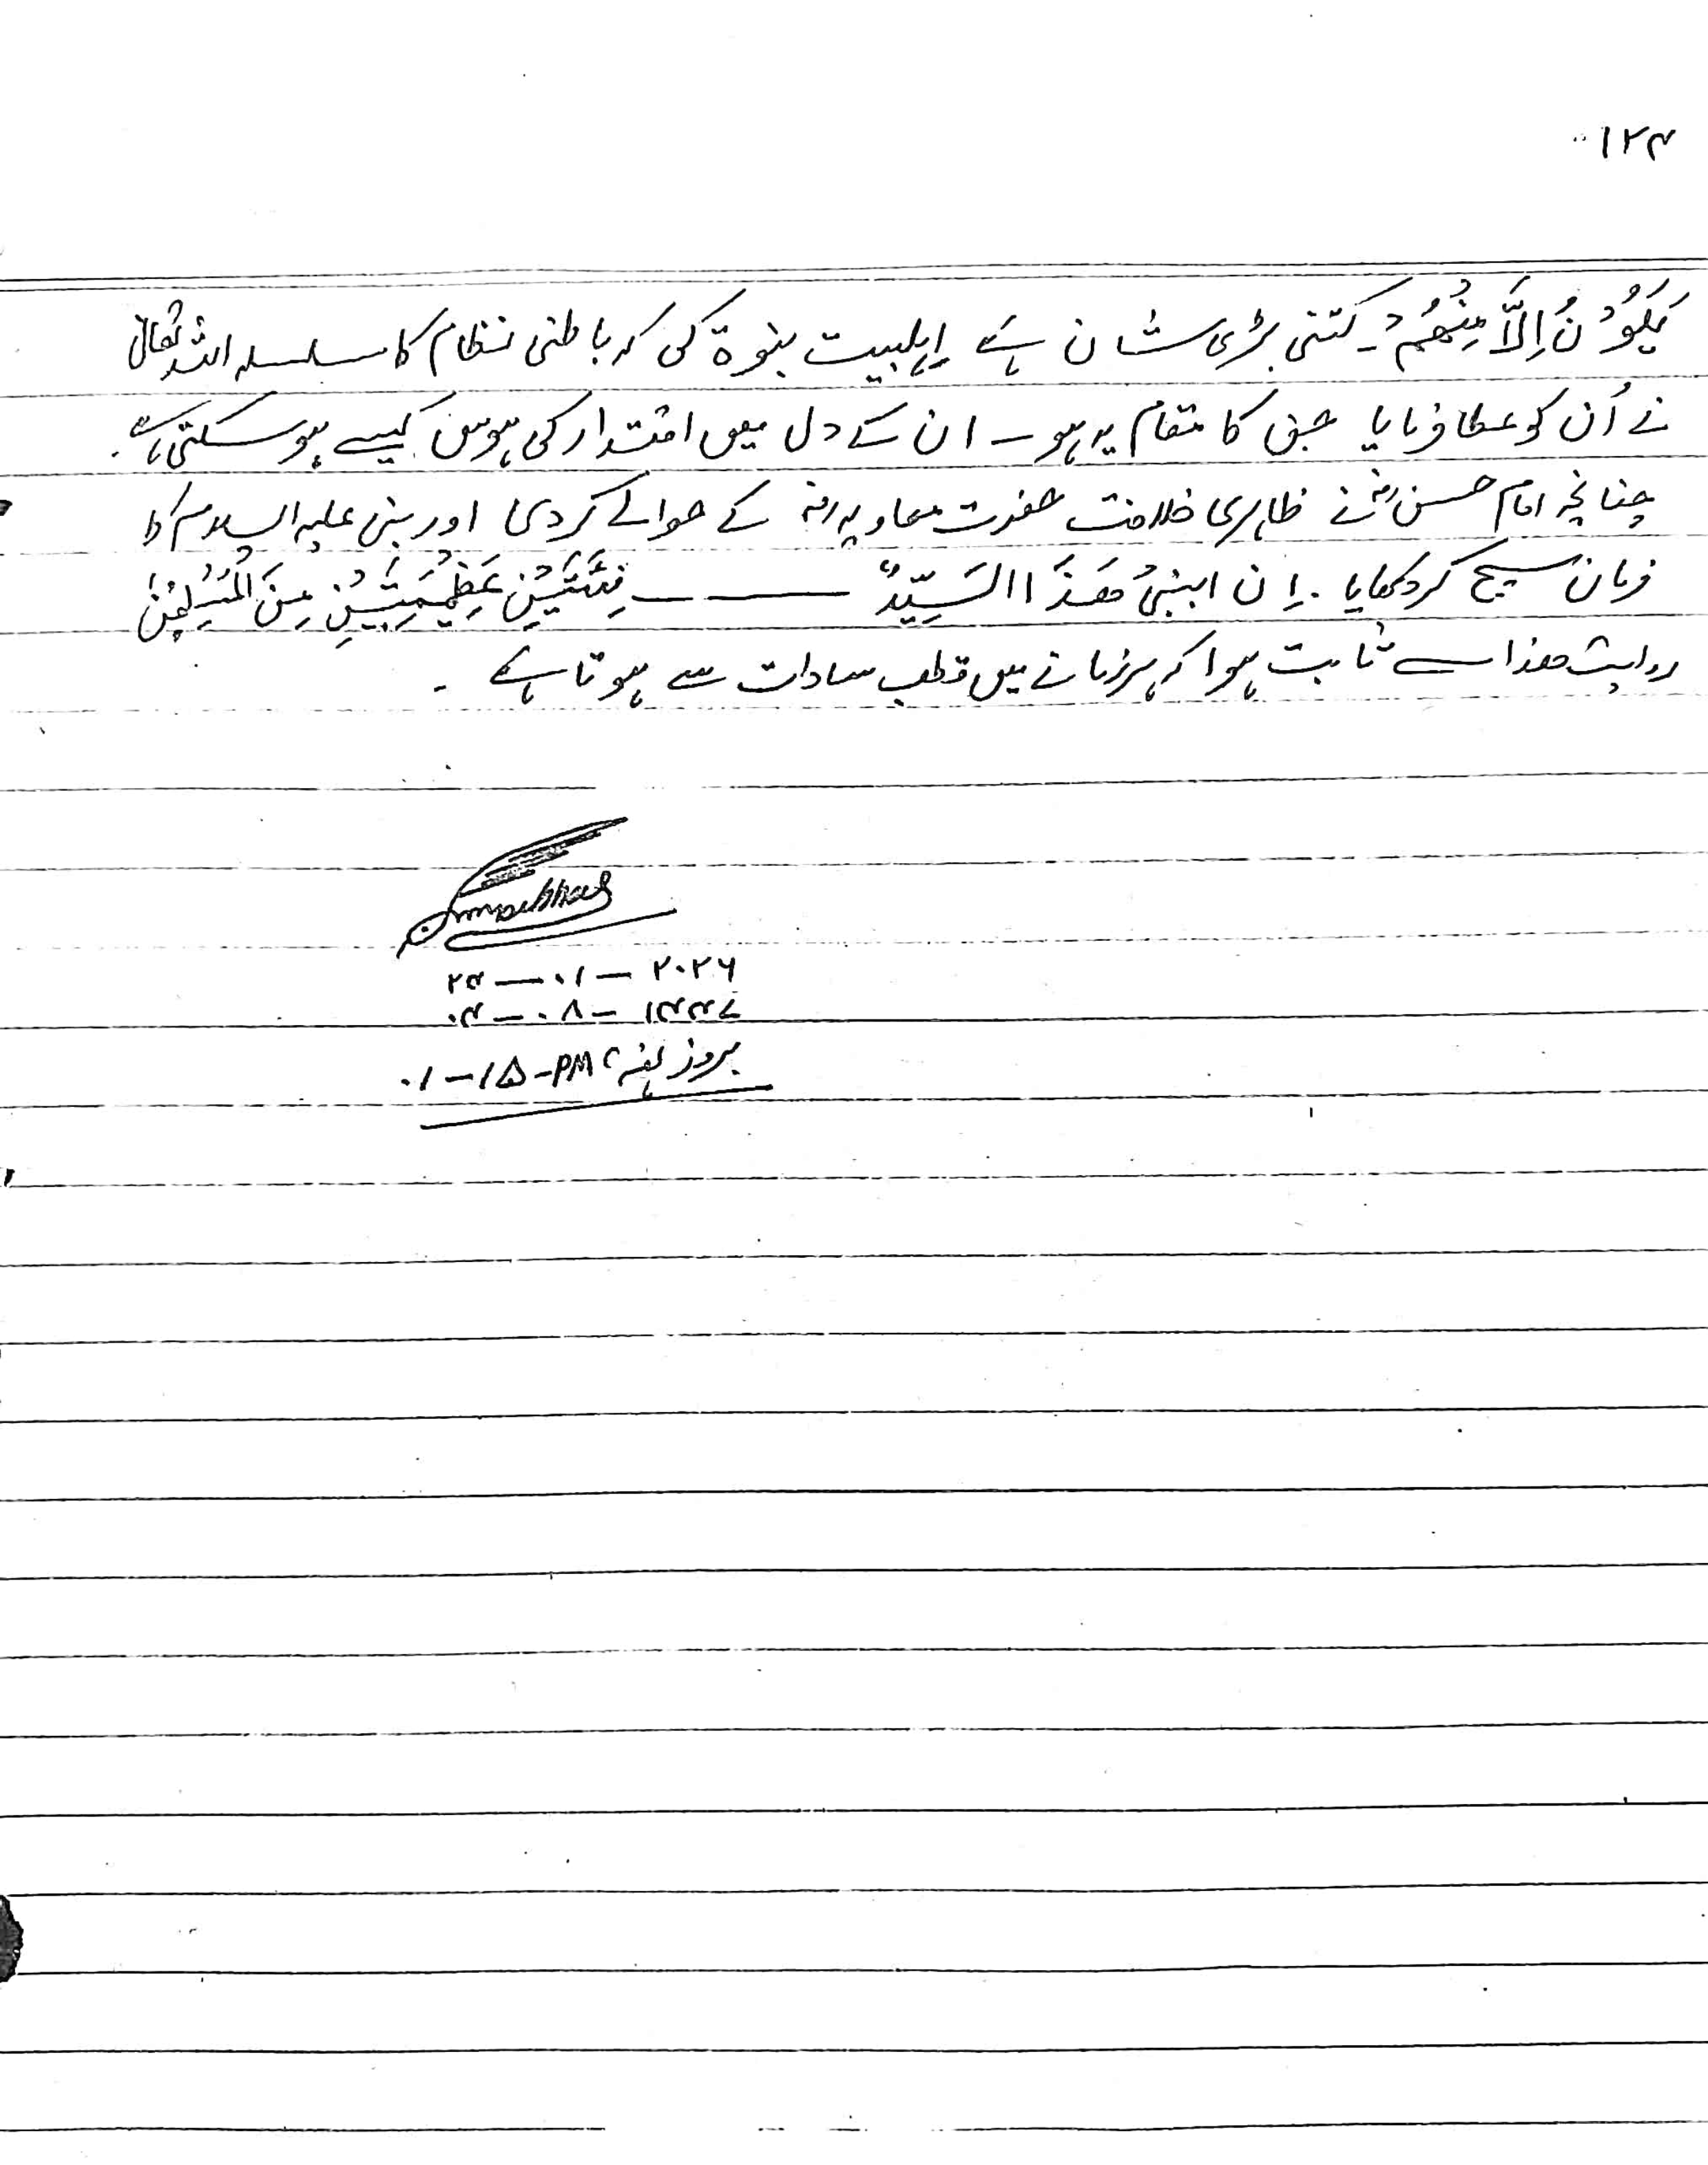 ۱۲۴
یَکُوْنُ اِلَّا مِنْھُمْ۔ کتنی بڑی شان ہے اہلبیت نبوۃ کی کہ باطنی نظام کا سلسلہ اللہ تعالیٰ
نے اُن کو عطا فرمایا جن کا مقام یہ ہو۔ ان کے دل میں اقتدار کی ہوس کیسے ہو سکتی ہے۔
چنانچہ امام حسنؓ نے ظاہری خلافت حضرت معاویہؓ کے حوالے کر دی اور نبی علیہ السلام کا
فرمان سچ کر دکھایا۔ اِن ابنیْ ھٰذَا السَیِّدٌ ——— فِئَتَیْنِ عَظِیْمَتَیْنِ مِنَ الْمُسْلِمِیْنَ
روایت ھذا سے ثابت ہوا کہ ہر زمانے میں قطب سادات سے ہوتا ہے۔
۲۴—۰۱—۲۰۲۶
۰۴—۰۸—۱۴۴۷
بروز ہفتہ ۰۱-۱۵-PM